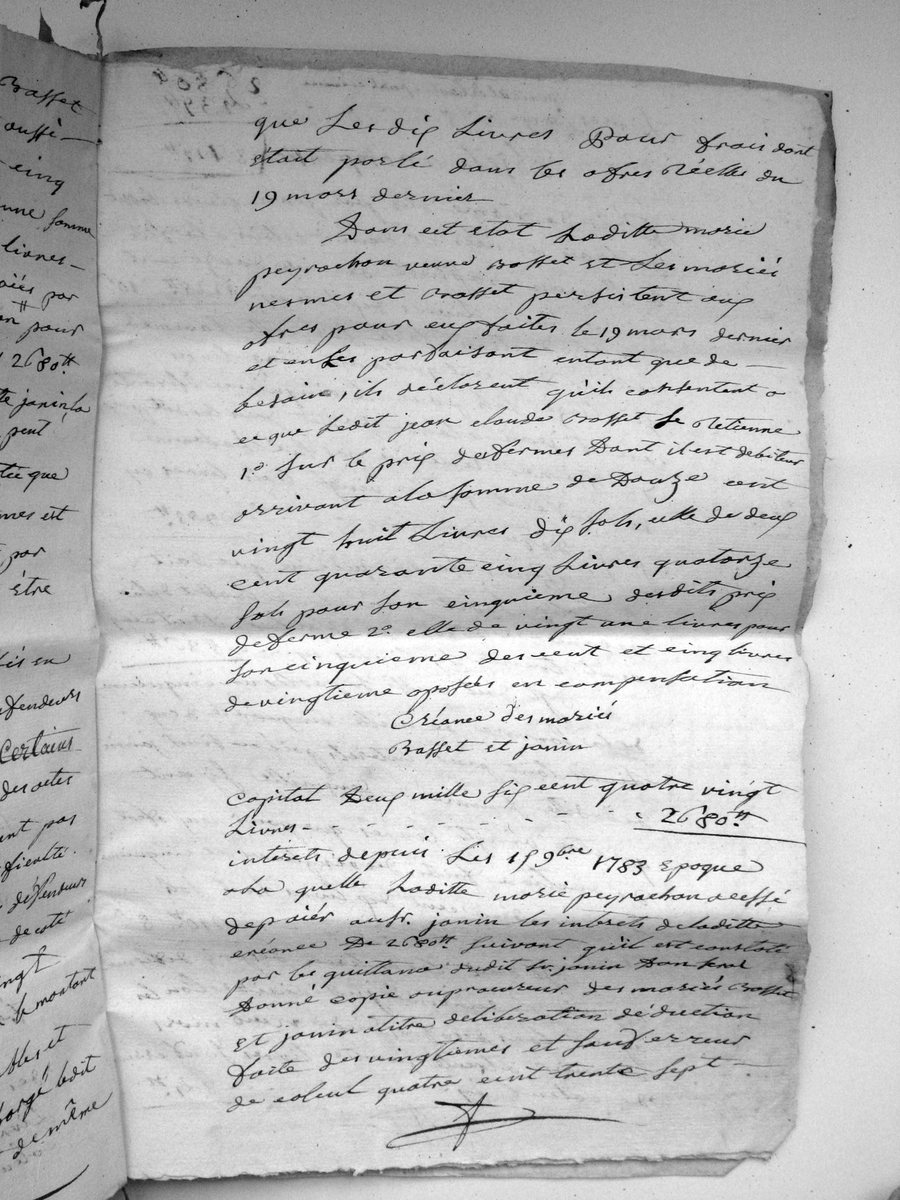 Basset
aussi —
cinq
une somme
livres —
par
pour
2680.tt
te janin la
peut
que
et
par
être
en
defendeurs
Certains
des actes
ent pas
defendeur
de coté
vingt
le montant
et
ledit
de même
que Les dix Livres Pour frais dont
était parlé dans les ofres Réelles du
19 mars dernier
Dans cet etat Laditte marie
peyrachon veuve Basset et Les mariés
nesmes et Basset persistent aux
ofres pour eux faites le 19 mars dernier
et en Les parfaisant entant que de —
besoin, ils déclarent qu'ils consentent a
ce que Ledit jean claude Basset se Retienne
1.° Sur le prix defermes Dont il est debiteur
arrivant ala somme de Douze cent
vingt huit Livres dix sols, celle de deux
cent quarante cinq Livres quatorze
sols pour son cinquieme desdits prix
deferme 2.° celle de vingt une livres pour
son cinquieme des cent et cinq livres
de vingtieme oposées en compensation
Créance des mariés
Basset et janin
Capital Deux mille six cent quatre vingt
Livres - - - - - - - 2680.tt
interets depuis Les 15 9.bre 1783 Epoque
a La quelle Laditte marie peyrachon a cessé
de paiér au sr. janin les interets de laditte
créance De 2680tt suivant qu'il est constaté
par les quittance dudit Sr. janin Dont sera
Donné copie au procureur des mariés Basset
et janin a titre de liberation déduction
faite des vingtiemes et sauf erreur
de calcul quatre cent trente sept —